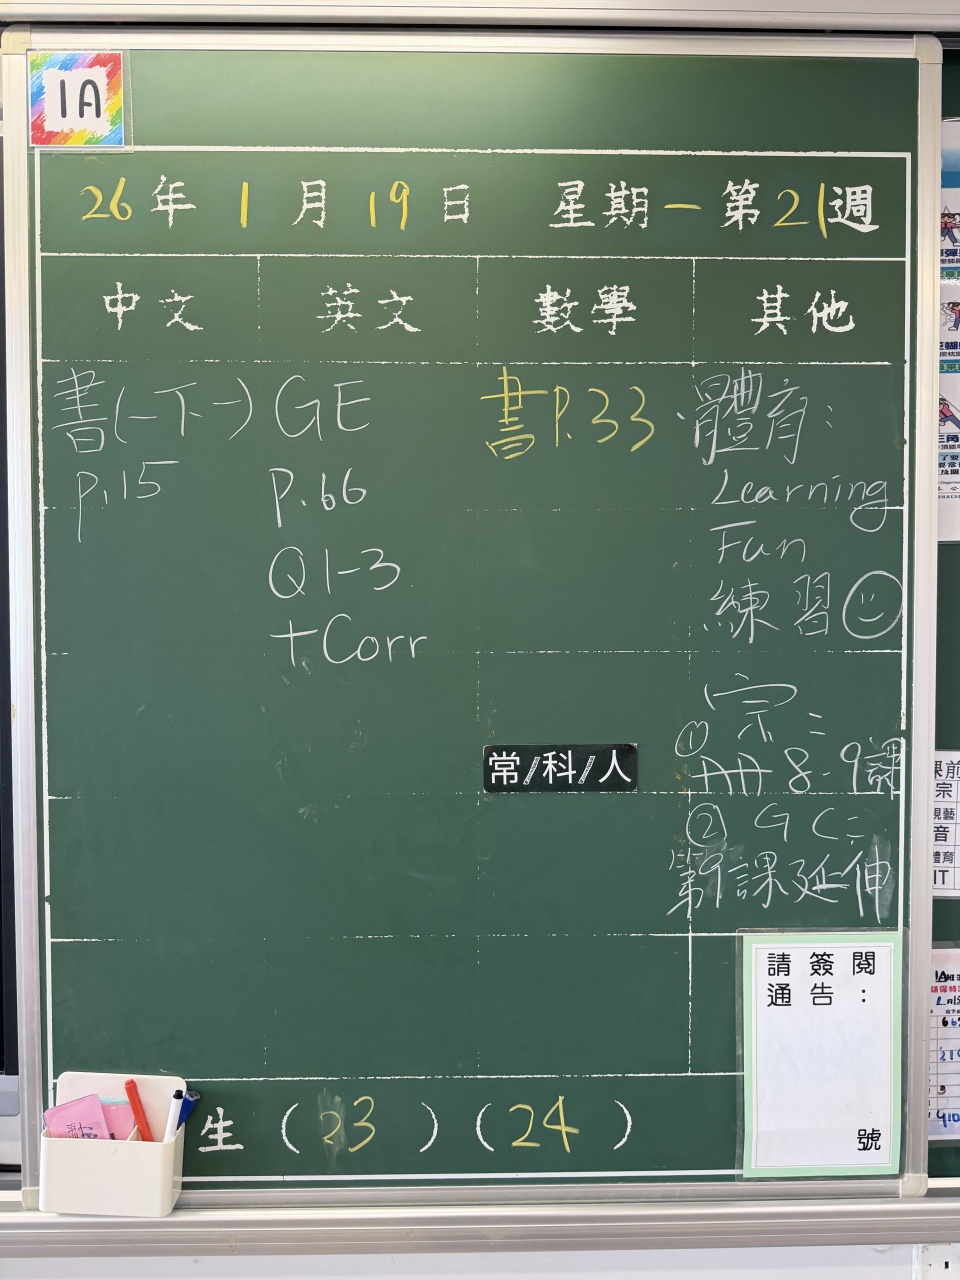 1A
26年1月19日 星期一 第21週
中文 英文 數學 其他
書(一下一)
p.15
GE
P.66
Q1-3
+Corr
書P.33
常/科/人
體育:
Learning
Fun
練習
宗:
①
AA 8-9課
② GC:
第9課延伸
請簽閱
通告:
號
生 (23) (24)
課前
宗
視藝
音
體育
IT